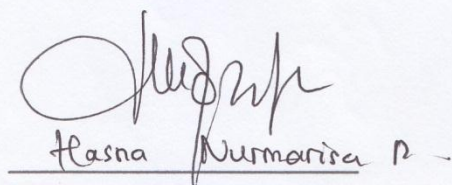 Hasna Nurmarisa R